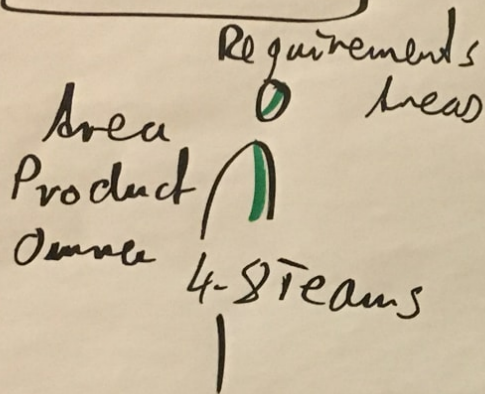 Requirements
Areas
Area
Product
Owner
4-8 Teams